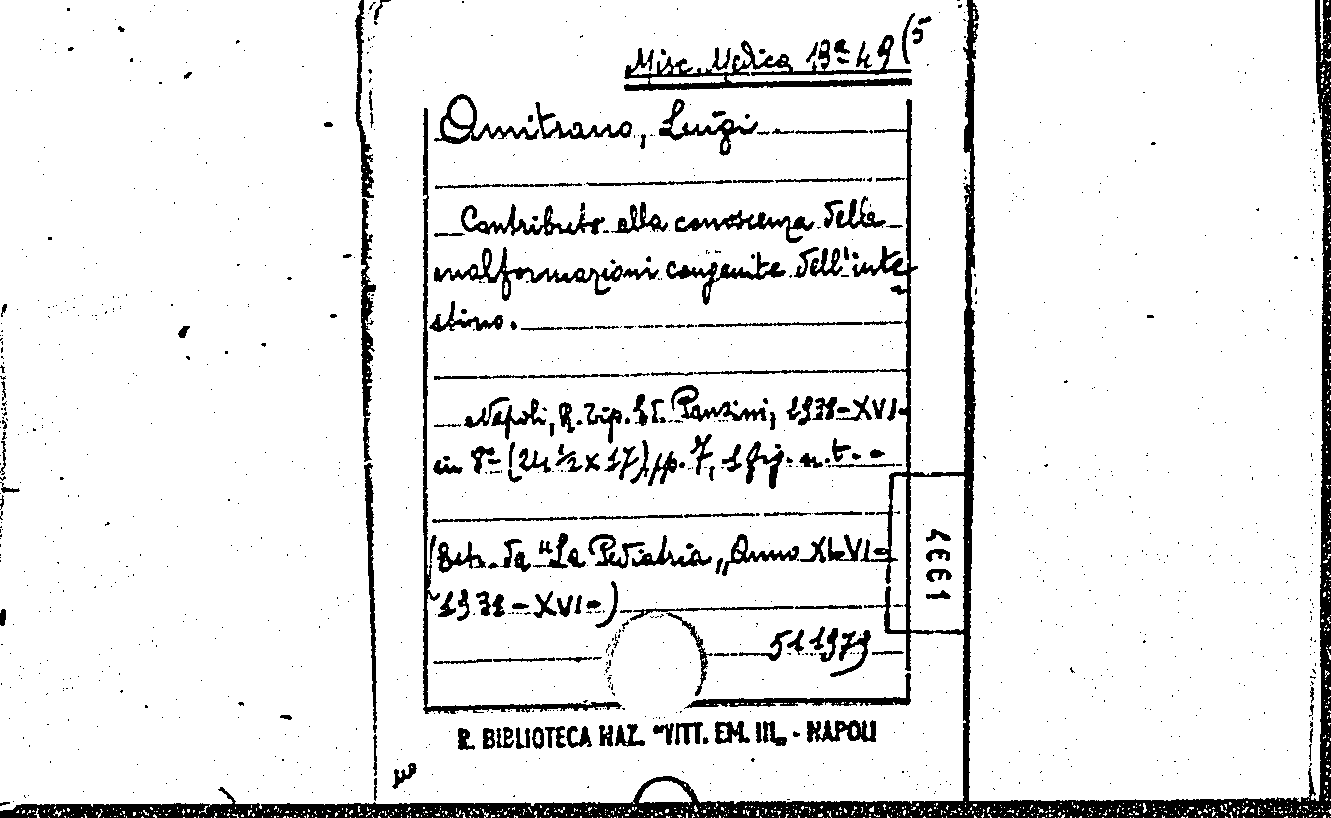 Misc. Medica 13ª 49 (5
Amitrano, Luigi
Contributo alla conoscenza delle
malformazioni congenite dell'inte-
stino.
Napoli, R. Tip. Ed. Panzini, 1938-XVI-
in 8º (24 ½ x 17) pp. 7, 1 fig. n.t. -
(Estr. da "La Pediatria" Anno XLVI-
1938-XVI-)
511979
R. BIBLIOTECA NAZ. "VITT. EM. III" - NAPOLI